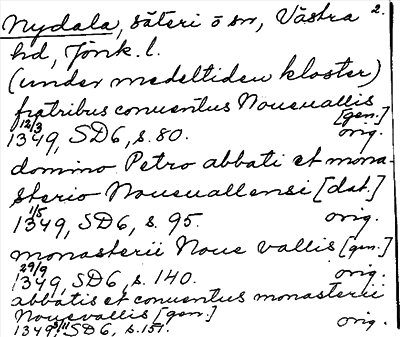 Nydala, säteri o sn, Västra 2.
hd, Jönk. l.
(under medeltiden kloster)
fratribus conuentus Noueuallis
[gen.]
12/3
1349, SD6, s. 80. orig.
domino Petro abbati et mona-
sterio Noueuallensi [dat.]
1/5
1349, SD6, s. 95. orig.
monasterii Noue vallis [gen.]
29/9
1349, SD6, s. 140. orig.
abbatis et conuentus monasterii
Nouevallis [gen.]
1349, SD6, s. 151. orig.